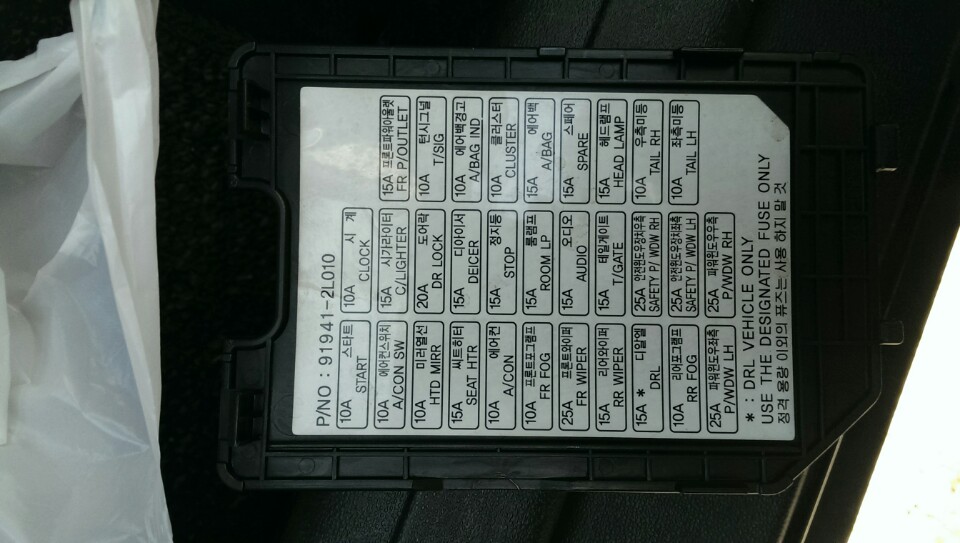 P/NO : 91941-2L010
10A 스타트
START
10A 시 계
CLOCK
10A 에어컨스위치
A/CON SW
15A 시가라이터
C/LIGHTER
15A 프론트파워아울렛
FR P/OUTLET
10A 미러열선
HTD MIRR
20A 도어락
DR LOCK
10A 턴시그널
T/SIG
15A 씨트히터
SEAT HTR
15A 디아이서
DEICER
10A 에어백경고
A/BAG IND
10A 에어컨
A/CON
15A 정지등
STOP
10A 클러스터
CLUSTER
10A 프론트포그램프
FR FOG
15A 룸램프
ROOM LP
15A 에어백
A/BAG
25A 프론트와이퍼
FR WIPER
15A 오디오
AUDIO
15A 스페어
SPARE
15A 리어와이퍼
RR WIPER
15A 테일게이트
T/GATE
15A 헤드램프
HEAD LAMP
15A * 디알엘
DRL
25A 안전윈도우장치우측
SAFETY P/ WDW RH
10A 우측미등
TAIL RH
10A 리어포그램프
RR FOG
25A 안전윈도우장치좌측
SAFETY P/ WDW LH
10A 좌측미등
TAIL LH
25A 파워윈도우좌측
P/WDW LH
25A 파워윈도우우측
P/WDW RH
* : DRL VEHICLE ONLY
USE THE DESIGNATED FUSE ONLY
정격 용량 이외의 퓨즈는 사용하지 말 것